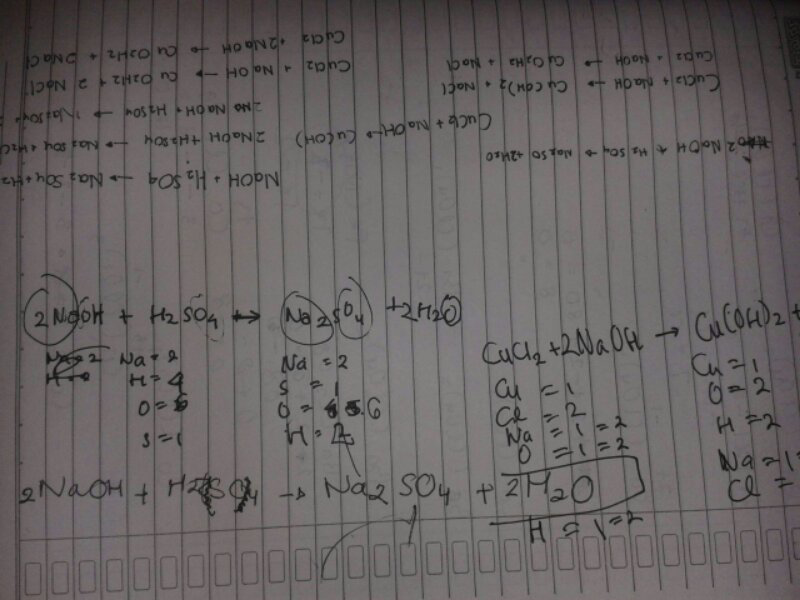 CuCl2 + 2NaOH → Cu O2H2 + 2NaCl
CuCl2 + NaOH → Cu O2H2 + 2 NaCl
CuCl2 + NaOH → Cu O2H2 + NaCl
CuCl2 + NaOH → Cu(OH)2 + NaCl
2NaOH + H2SO4 → Na2SO4 +
2NaOH + H2SO4 → Na2SO4 + H2O
NaOH → Cu(OH)
2NaOH + H2SO4 → Na2SO +2H2O
NaOH + H2SO4 → Na2SO4 + H2
2NaOH + H2SO4 → Na2SO4 + 2H2O
Na = 2 Na = 2
H = 4
O =
S = 1
Na = 2
S = 1
O = 6
H =
CuCl2 + 2NaOH → Cu(OH)2 +
Cu = 1
Cl = 2
Na = 1 = 2
O = 1 = 2
H = 1 = 2
Cu = 1
O = 2
H = 2
Na = 1 =
Cl =
2NaOH + H2SO4 → Na2SO4 + 2H2O